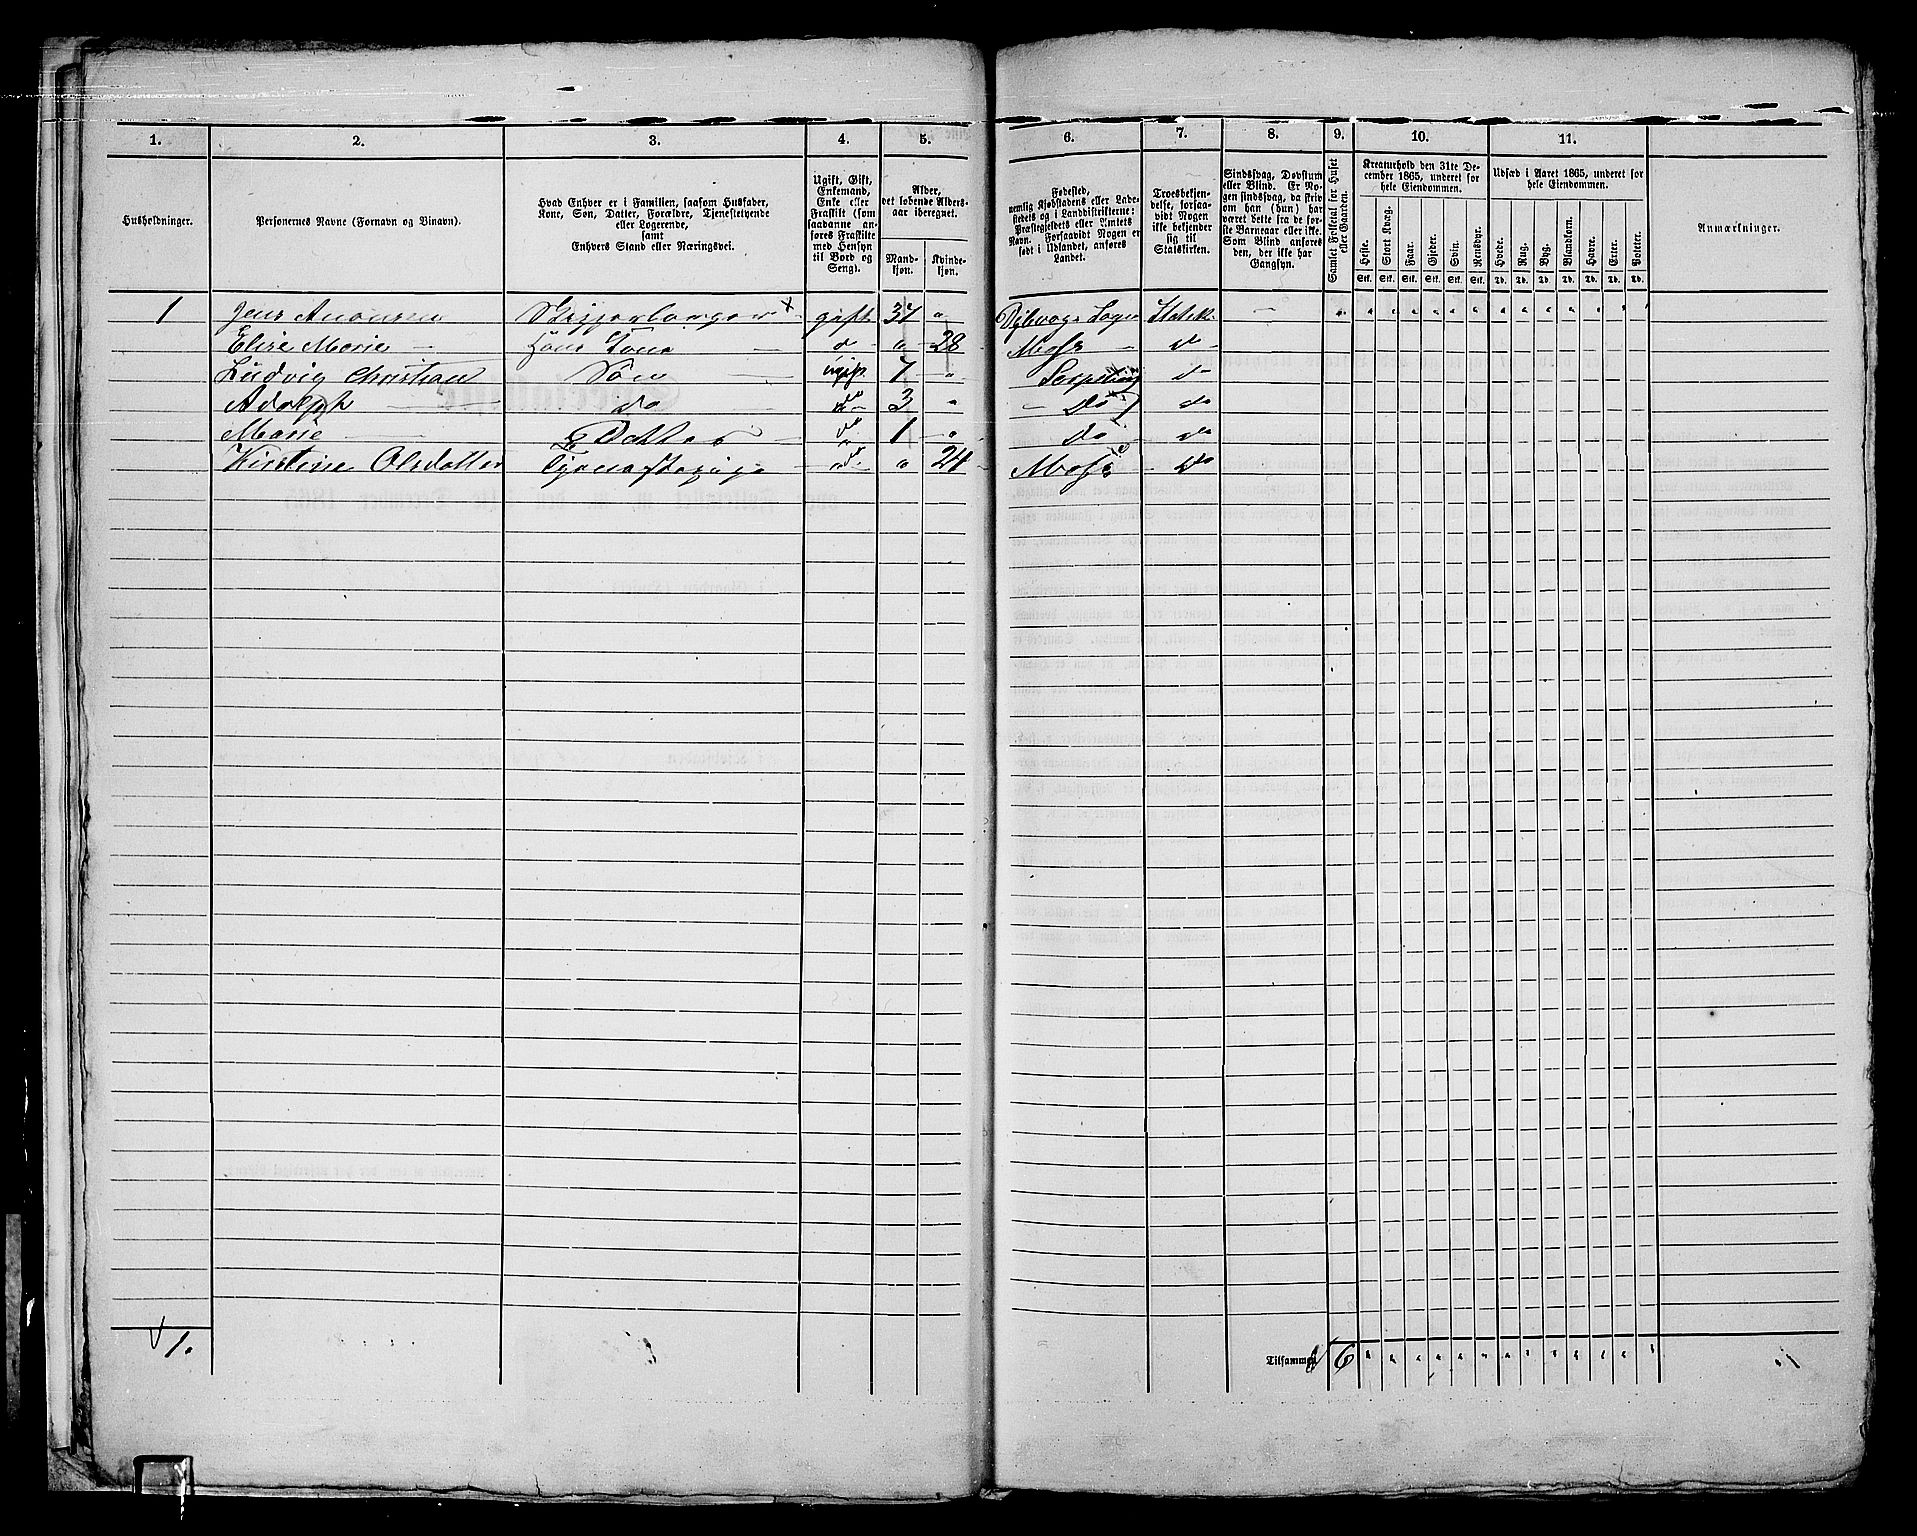 1. 2. 3. 4. 5. 6. 7. 8. 9. 10. 11.
Husholdninger.
Personernes Navne (Fornavn og Binavn).
Hvad Enhver er i Familien, saasom Husfader,
Kone, Søn, Datter, Forældre, Tjenestetyende
eller Logerende,
samt
Enhvers Stand eller Næringsvei.
Ugift, Gift,
Enkemand,
Enke eller
Fraskilt (som
saadanne an-
føres Fraskilte
med Hensyn
til Bord og
Seng).
Alder,
det løbende Alders-
aar iberegnet.
Mand-
kjøn.
Kvinde-
kjøn.
Fødested,
nemlig Kjøbstadens eller Lade-
stedets og i Landdistrikterne:
Præstegjeldets eller Amtets
Navn. Forsaavidt Nogen er
født i Udlandet, anføres
Landet.
Troesbekjen-
delse, forsaa-
vidt Nogen
ikke bekjender
sig til
Statskirken.
Sindssvag, Døvstum
eller Blind. Er No-
gen sindssvag, da skriv
om han (hun) har
været dette fra de før-
ste Barneaar eller ikke.
Som Blind anføres
den, der ikke har
Gangsyn.
Samlet Folketal for Huset
eller Gaarden.
Kreaturhold den 31te De-
cember 1865, underet for
hele Eiendommen.
Heste. Stort Kvæg. Faar. Gjeder. Svin. Rensdyr.
Stk. Stk. Stk. Stk. Stk. Stk.
Udsæd i Aaret 1865, underet for
hele Eiendommen.
Hvede. Rug. Byg. Blandkorn. Havre. Erter. Poteter.
Td. Td. Td. Td. Td. Td. Td.
Anmærkninger.
1 Jens gift 37 " Statsk.
Elise Marie – Hans Kone – d " 28 Moss – do –
Ludvig Christian Søn – ugift 7 " do
Adolph – do – do 3 " – Do do
Marie – Datter – do 1 " Do do
Kirstine Olsdatter Tjenestepige do " 24 Moss – Do
1. Tilsammen 6